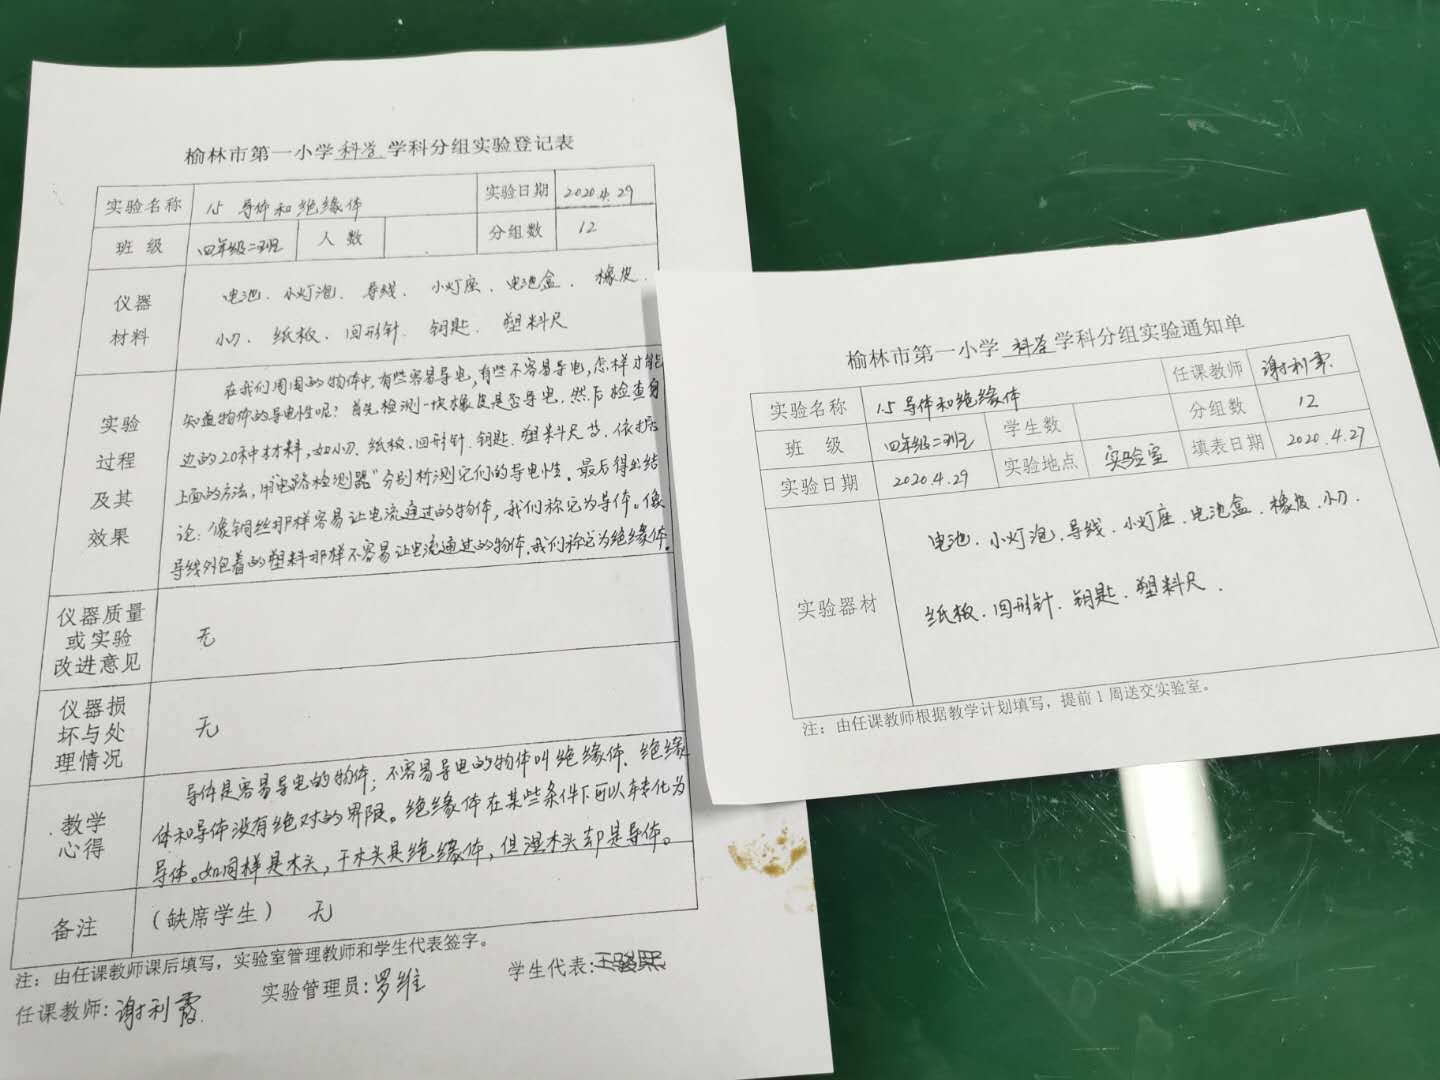 榆林市第一小学科学学科分组实验登记表
实验名称 1.5 导体和绝缘体 实验日期 2020.4.29
班 级 四年级二班 人 数 分组数 12
仪器材料
电池、小灯泡、导线、小灯座、电池盒、橡皮、
小刀、纸板、回形针、钥匙、塑料尺
实验过程及其效果
在我们周围的物体中,有些容易导电,有些不容易导电,怎样才能
知道物体的导电性呢?首先检测一块橡皮是否导电,然后检查身
边的20种材料,如小刀、纸板、回形针、钥匙、塑料尺等,依据
上面的方法,用"电路检测器"分别析测它们的导电性。最后得出结
论:像铜丝那样容易让电流通过的物体,我们称它为导体。像
导线外包着的塑料那样不容易让电流通过的物体,我们称它为绝缘体。
仪器质量或实验改进意见 无
仪器损坏与处理情况 无
教学心得
导体是容易导电的物体;不容易导电的物体叫绝缘体。绝缘
体和导体没有绝对的界限。绝缘体在某些条件下可以转化为
导体。如同样是木头,干木头是绝缘体,但湿木头却是导体。
备注 (缺席学生) 无
注:由任课教师课后填写,实验室管理教师和学生代表签字。
任课教师:谢利霞 实验管理员:罗维 学生代表:王骏熙
榆林市第一小学科学学科分组实验通知单
实验名称 1.5导体和绝缘体 任课教师 谢利霞
班 级 四年级二班 学生数 分组数 12
实验日期 2020.4.29 实验地点 实验室 填表日期 2020.4.27
实验器材
电池、小灯泡、导线、小灯座、电池盒、橡皮、小刀、
纸板、回形针、钥匙、塑料尺、
注:由任课教师根据教学计划填写,提前1周送交实验室。